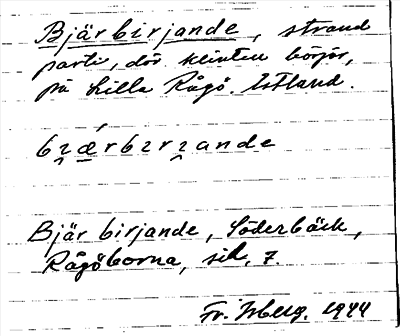 Bjärbirjande, strand
parti, där klinten börjar,
på Lilla Rågö. Estland.
bɿ̯ǽrbɿrɿ̯ande
Bjär birjande, Söderbäck,
Rågöborna, sid. 7.
Fr. Isberg. 1944